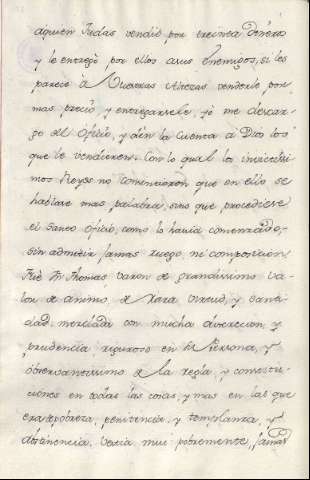 aquien Judas vendiò por treinta Dineros
y le entregò por ellos asus Enemigos, si les
pareciò à Vuestras Altezas venderle por
mas precio, y entregarsele, yò me descar-
go del Oficio, y dèn la Cuenta à Dios los
que le vendieren. Con lo qual los invictissi-
mos Reyes no consintieron que en ello se
hablare mas palabra, sino que procediese
el Santo oficio, como lo havia comenzado,
sin admitir jamas ruego, ni composicion
Fuè Fr Thomas, varon de grandissimo va-
lor de animo, de Rara virtud, y Santi-
dad, mezclada con mucha discrecion, y
prudencia, riguroso en su Persona, y
observantissimo de la regla, y constitu-
ciones en todas las cosas, y mas en las que
era pobreza, penitencia, y templanza, y
abstinencia. Vestia mui pobremente, jamas